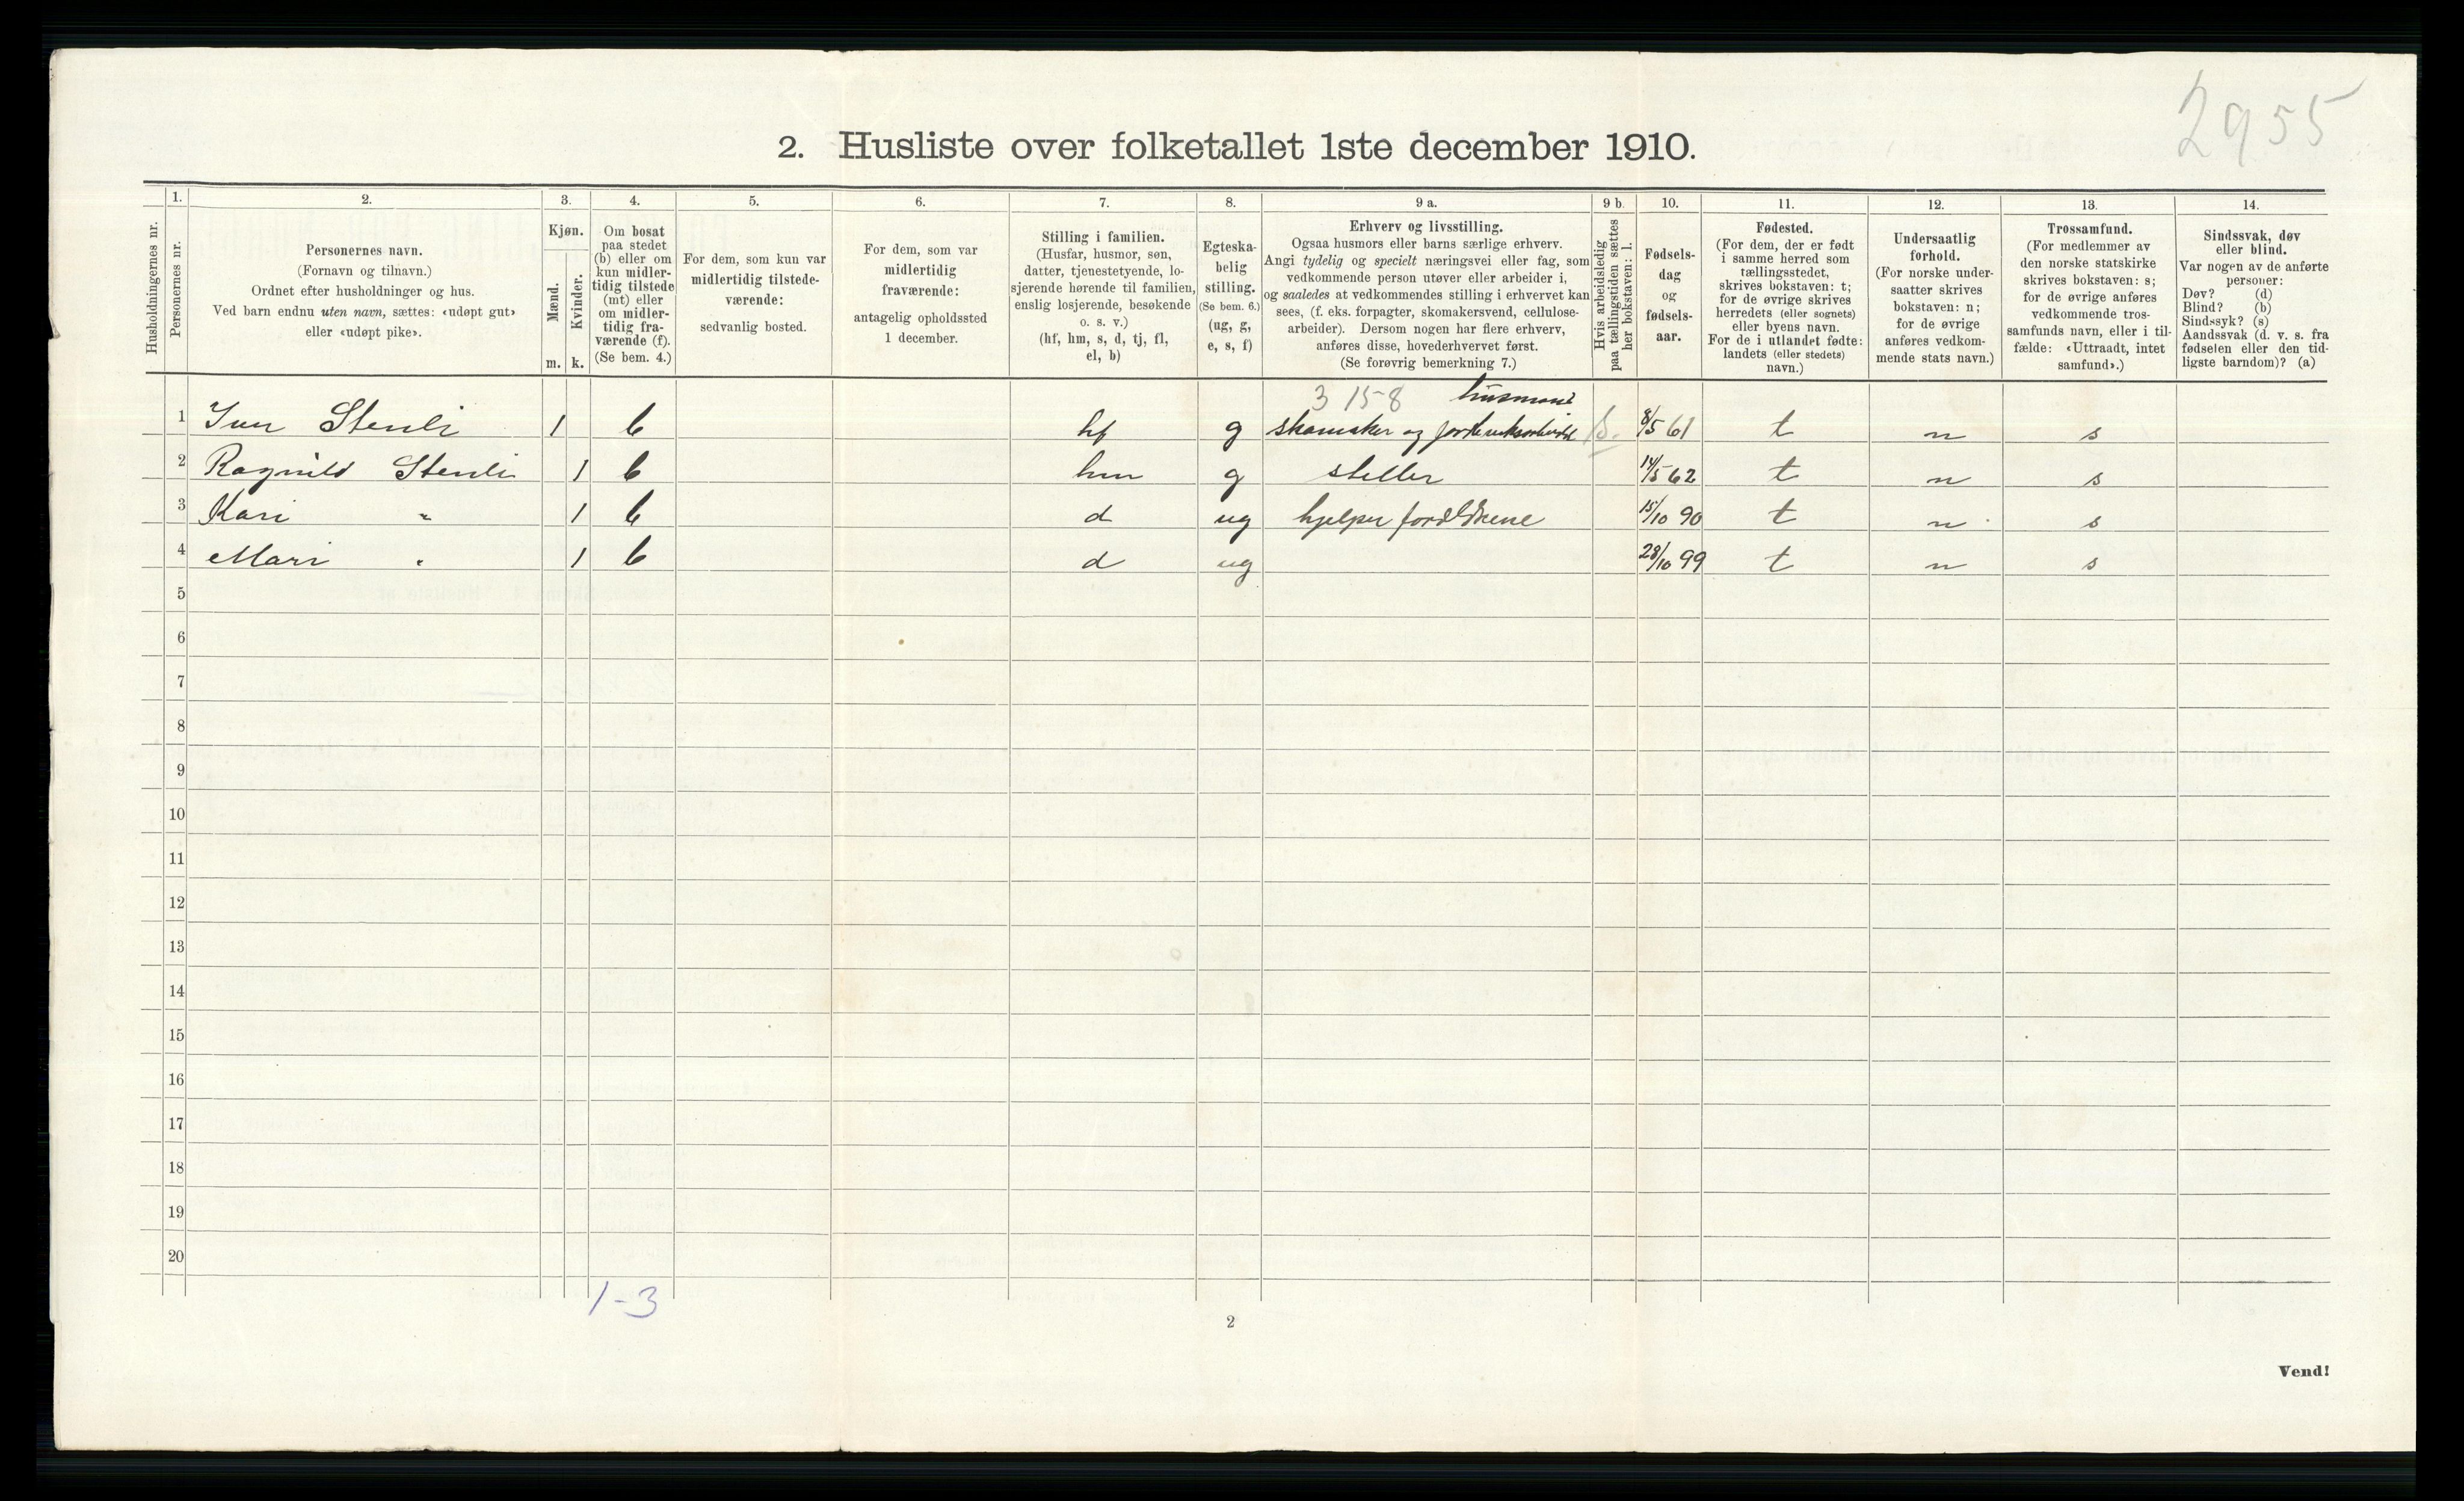 2955
2. Husliste over folketallet 1ste december 1910.
Husholdningernes nr.
1.
Personernes nr.
2.
Personernes navn.
(Fornavn og tilnavn.)
Ordnet efter husholdninger og hus.
Ved barn endnu uten navn, sættes: «udøpt gut»
eller «udøpt pike».
3.
Kjøn.
Mænd.
Kvinder.
m. k.
4.
Om bosat
paa stedet
(b) eller om
kun midler-
tidig tilstede
(mt) eller
om midler-
tidig fra-
værende (f).
(Se bem. 4.)
5.
For dem, som kun var
midlertidig tilstede-
værende:
sedvanlig bosted.
6.
For dem, som var
midlertidig
fraværende:
antagelig opholdssted
1 december.
7.
Stilling i familien.
(Husfar, husmor, søn,
datter, tjenestetyende, lo-
sjerende hørende til familien,
enslig losjerende, besøkende
o. s. v.)
(hf, hm, s, d, tj, fl,
el, b)
8.
Egteska-
belig
stilling.
(Se bem. 6.)
(ug, g,
e, s, f)
9 a.
Erhverv og livsstilling.
Ogsaa husmors eller barns særlige erhverv.
Angi tydelig og specielt næringsvei eller fag, som
vedkommende person utøver eller arbeider i,
og saaledes at vedkommendes stilling i erhvervet kan
sees, (f. eks. forpagter, skomakersvend, cellulose-
arbeider). Dersom nogen har flere erhverv,
anføres disse, hovederhvervet først.
(Se forøvrig bemerkning 7.)
9 b.
Hvis arbeidsledig
paa tællingstiden sættes
her bokstaven: l.
10.
Fødsels-
dag
og
fødsels-
aar.
11.
Fødested.
(For dem, der er født
i samme herred som
tællingsstedet,
skrives bokstaven: t;
for de øvrige skrives
herredets (eller sognets)
eller byens navn.
For de i utlandet fødte:
landets (eller stedets)
navn.)
12.
Undersaatlig
forhold.
(For norske under-
saatter skrives
bokstaven: n;
for de øvrige
anføres vedkom-
mende stats navn.)
13.
Trossamfund.
(For medlemmer av
den norske statskirke
skrives bokstaven: s;
for de øvrige anføres
vedkommende tros-
samfunds navn, eller i til-
fælde: «Uttraadt, intet
samfund».)
14.
Sindssvak, døv
eller blind.
Var nogen av de anførte
personer:
Døv? (d)
Blind? (b)
Sindssyk? (s)
Aandssvak (d. v. s. fra
fødselen eller den tid-
ligste barndom)? (a)
3 15-8 husmand
1 Iver Stenli 1 b hf g skomaker og 8/5 61 t n s
2 Ragnild Stenli 1 b hm g steller 14/5 62 t n s
3 Kari " 1 b d ug hjelper forældrene 15/10 90 t n s
4 Mari " 1 b d ug 28/10 99 t n s
5
6
7
8
9
10
11
12
13
14
15
16
17
18
19
20
1-3
2
Vend!